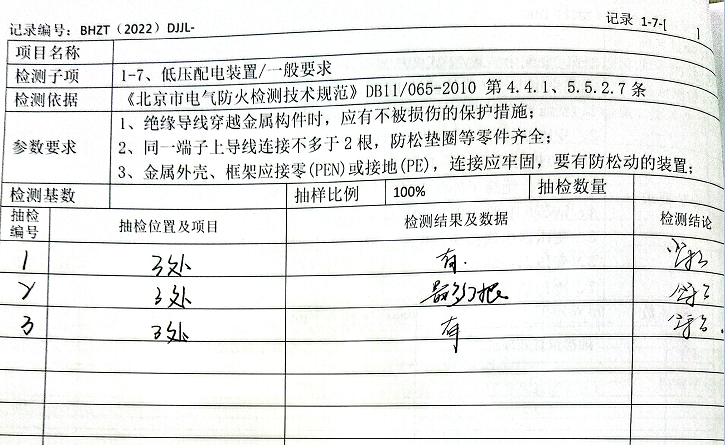 记录编号：BHZT（2022）DJJL-
记录 1-7-[ ]
项目名称
检测子项 1-7、低压配电装置/一般要求
检测依据 《北京市电气防火检测技术规范》DB11/065-2010 第 4.4.1、5.5.2.7 条
参数要求
1、绝缘导线穿越金属构件时，应有不被损伤的保护措施；
2、同一端子上导线连接不多于 2 根，防松垫圈等零件齐全；
3、金属外壳、框架应接零(PEN)或接地(PE)，连接应牢固，要有防松动的装置；
检测基数 抽样比例 100% 抽检数量
抽检编号 抽检位置及项目 检测结果及数据 检测结论
1 3处 有.
2 3处
3 3处 有